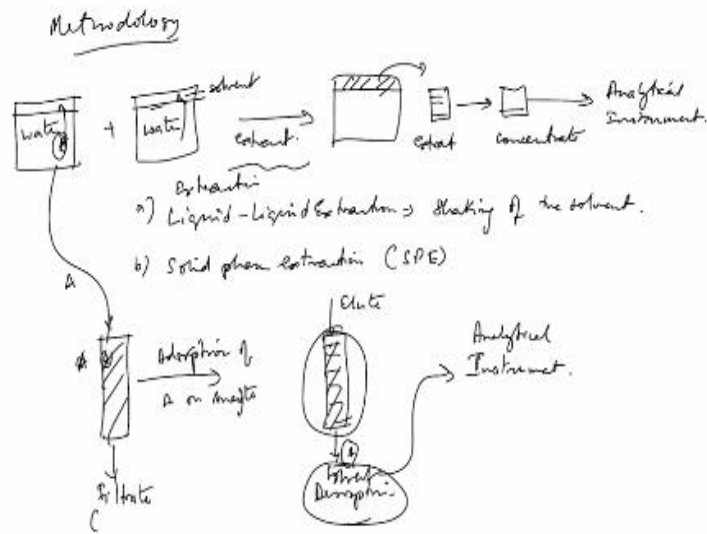 Methodology
water A + water solvent
extract.
extract → concentrate → Analytical Instrument.
Extraction
a) Liquid-Liquid Extraction => Shaking of the solvent.
b) Solid phase extraction (SPE)
A
A Adsorption of
A on
Filtrate
(
Elute
A
Solvent
Desorption.
Analytical
Instrument.